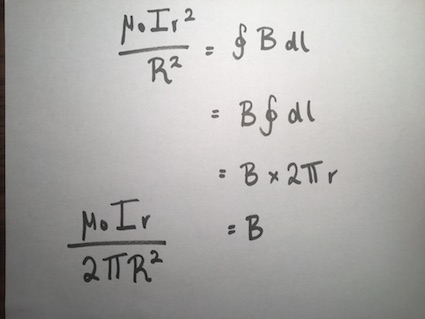 μ₀Ir²/R² = ∮ B dl
= B ∮ dl
= B × 2πr
μ₀Ir/2πR² = B